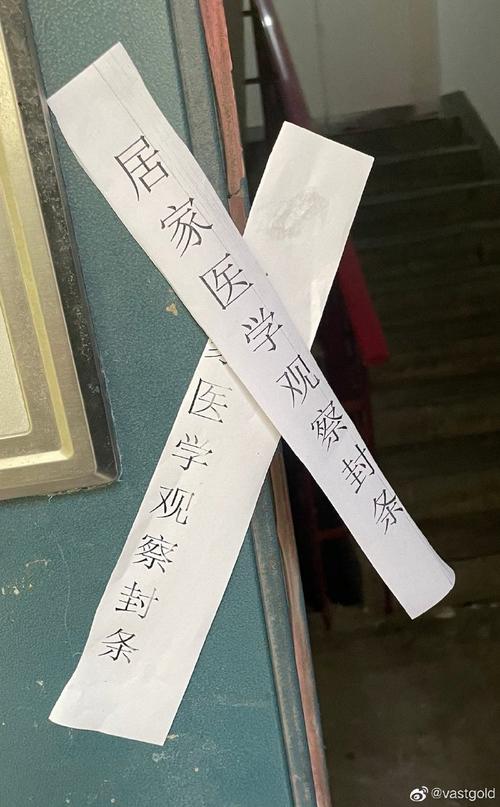 居家医学观察封条
医学观察封条
@vastgold